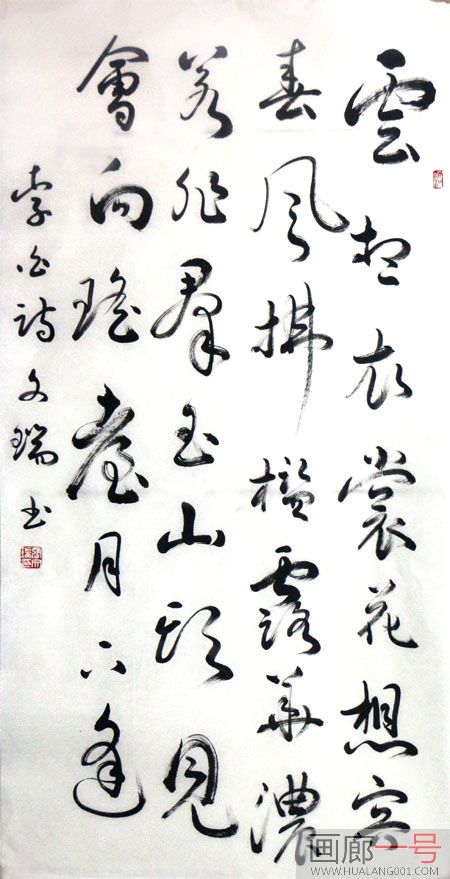 雲想衣裳花想容
春風拂檻露華濃
若非羣玉山頭見
會向瑤臺月下逢
李白詩 文瑞书
画廊一号
WWW.HUALANG001.COM